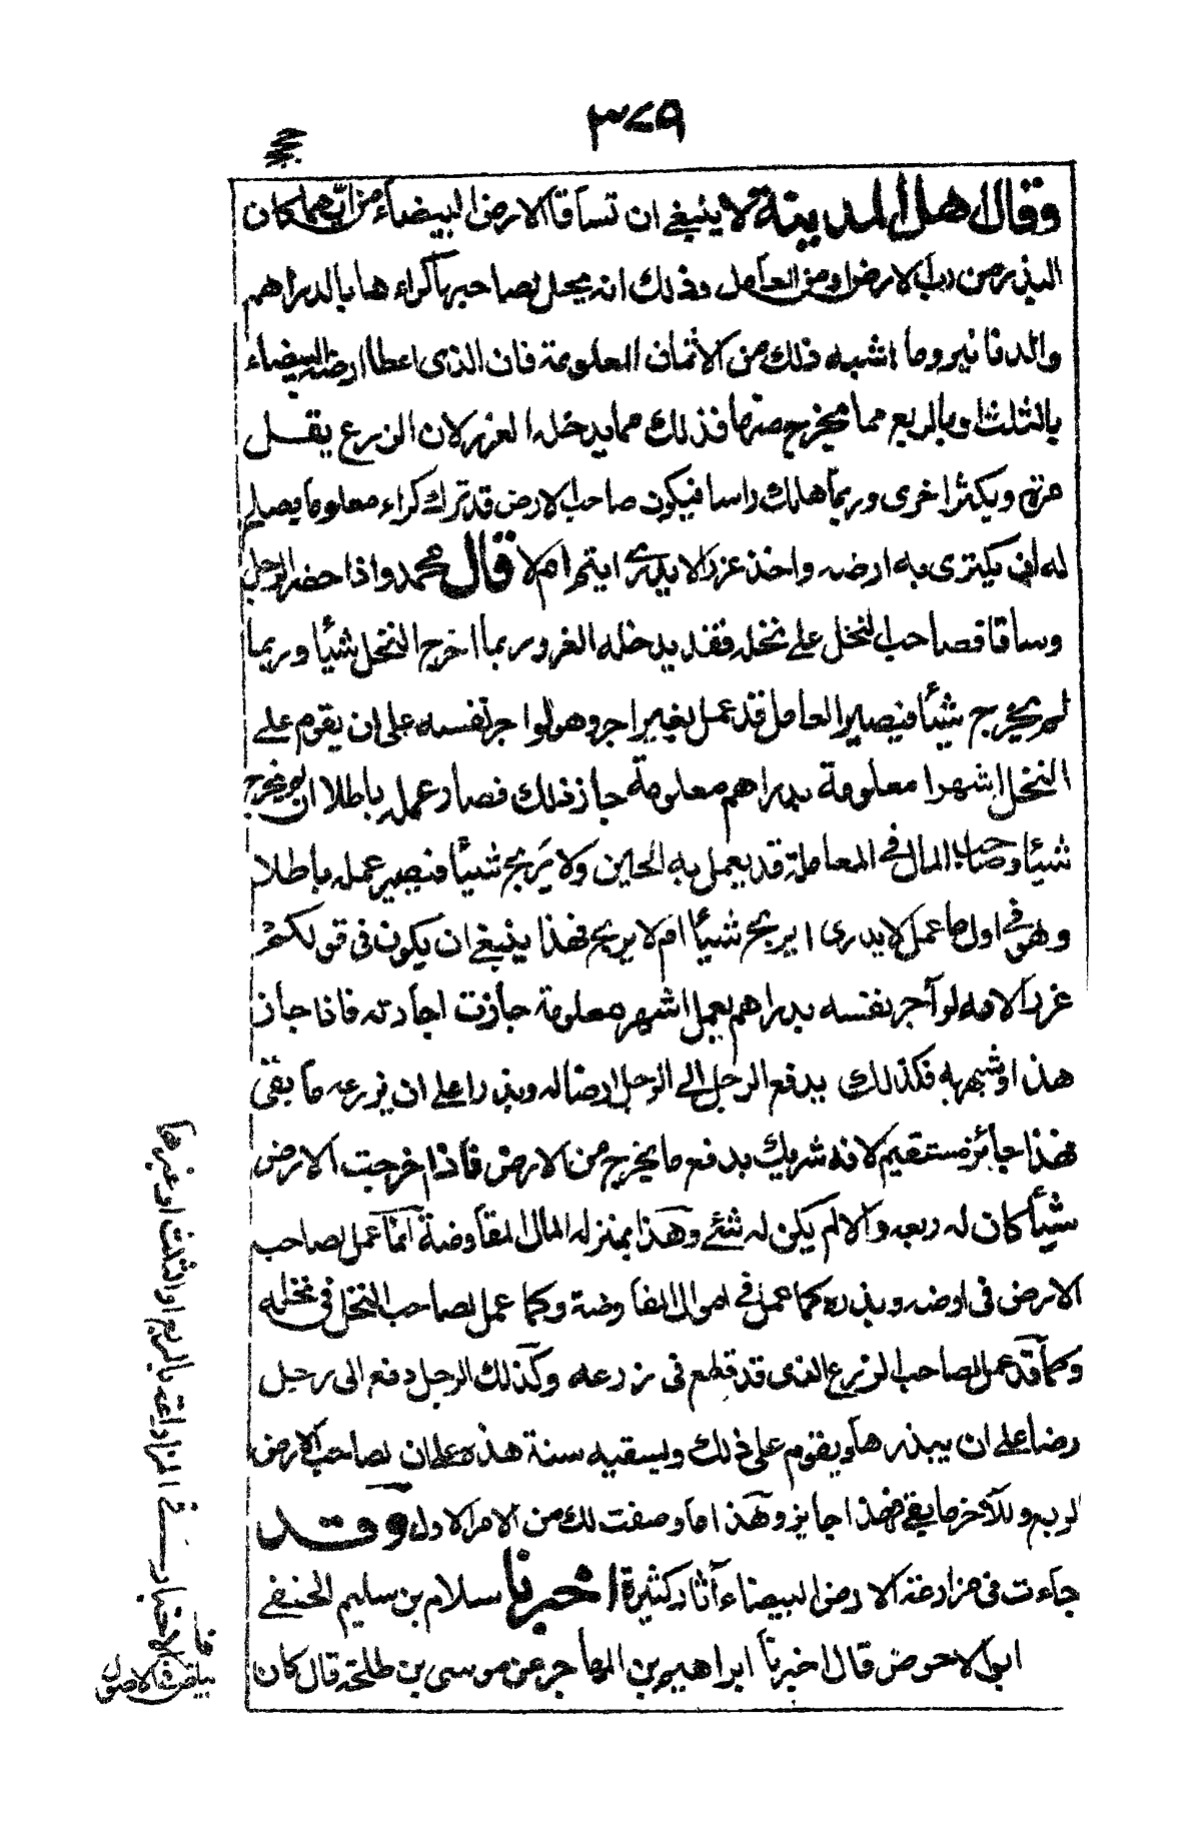 ٣٧٩
وقال اهل المدينة لا ينبغي ان تساقا الارض البيضاء من ايهما كان
البذر من رب الارض او من العامل وذلك انه يحل لصاحبها كراءها بالدراهم
والدنانير وما اشبه ذلك من الاثمان المعلومة فان الذى اعطا ارضه البيضاء
بالثلث او بالربع مما يخرج منها فذلك مما يدخله الغرر لان الزرع يقل
مرة ويكثر اخرى وربما هلك راسا فيكون صاحب الارض قد ترك كراء معلوما يصلح
له ان يكترى به ارضه واخذ غررا لا يدرى ايتم ام لا قال محمد واذا حضر الرجل
وساقا صاحب النخل على نخله فقد يدخله الغرر وربما اخرج النخل شيئا وربما
لم يخرج شيئا فيصير العامل قد عمل بغير اجر وهو لو اجر نفسه على ان يقوم على
النخل اشهرا معلومة بدراهم معلومة جاز ذلك فصار عمله باطلا ان لم يخرج
شيئا وصاحب المال في المعاملة قد يعمل به الحين ولا يربح شيئا فيصير عمله باطلا
وهو في اول ما عمل لا يدرى ايربح شيئا ام لا يربح فهذا ينبغي ان يكون فى قولكم
غررا لانه لو آجر نفسه بدراهم يعمل اشهر معلومة جازت اجارته فاذا جاز
هذا وشبهه فكذلك يدفع الرجل الى الرجل ارضا له وبذرا على ان يزرعه ما بقى
فهذا جائز مستقيم لانه شريك بدفع ما يخرج من الارض فاذا اخرجت الارض
شيئا كان له ربعه والا لم يكن له شئ وهذا بمنزله المال المقاوضة انما عمل لصاحب
الارض فى ارضه وبذره كما عمل في اموال المفاوضة وكما عمل لصاحب النخل فى نخله
وكما قد عمل لصاحب الزرع الذى قد قطع فى زرعه وكذلك الرجل دفع الى رجل
رضا على ان يبذرها ويقوم على ذلك ويسقيه سنة هذه على ان لصاحب الارض
لربع وللآخر ما بقى فهذا جايز وهذا ما وصفت لك من الامر الاول وقد
جاءت فى مزارعة الارض البيضاء آثار كثيرة اخبرنا سلام بن سليم الحنفي
ابو الاحوص قال اخبرنا ابراهيم بن المهاجر عن موسى بن طلحة قال كان
الاخبار في المزارعة بالربع او الثلث او غيرها